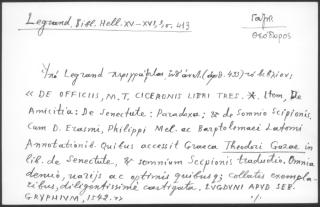 Legrand, Bibl. Hell. XV-XVI, 3, σ. 413
Γαζῆς
Θεόδωρος
Ὑπὸ Legrand περιγράφεται ἐνθ' ἀνωτ. (ἀριθ. 433) τὸ βιβλίον:
« DE OFFICIIS, M. T. CICERONIS LIBRI TRES. Item, De
Amicitia: De Senectute: Paradoxa: & de Somnio Scipionis.
Cum D. Erasmi, Philippi Mel. ac Bartolomaei Latomi
Annotationib. Quibus accessit Graeca Theodori Gazae in
lib. de Senectute, & somnium Scipionis traductio. Omnia
denuo, uarijs ac optimis quibusq; collatis exempla-
ribus, diligentissimè castigata. LVGDVNI APVD SEB.
GRYPHIVM, 1542. »